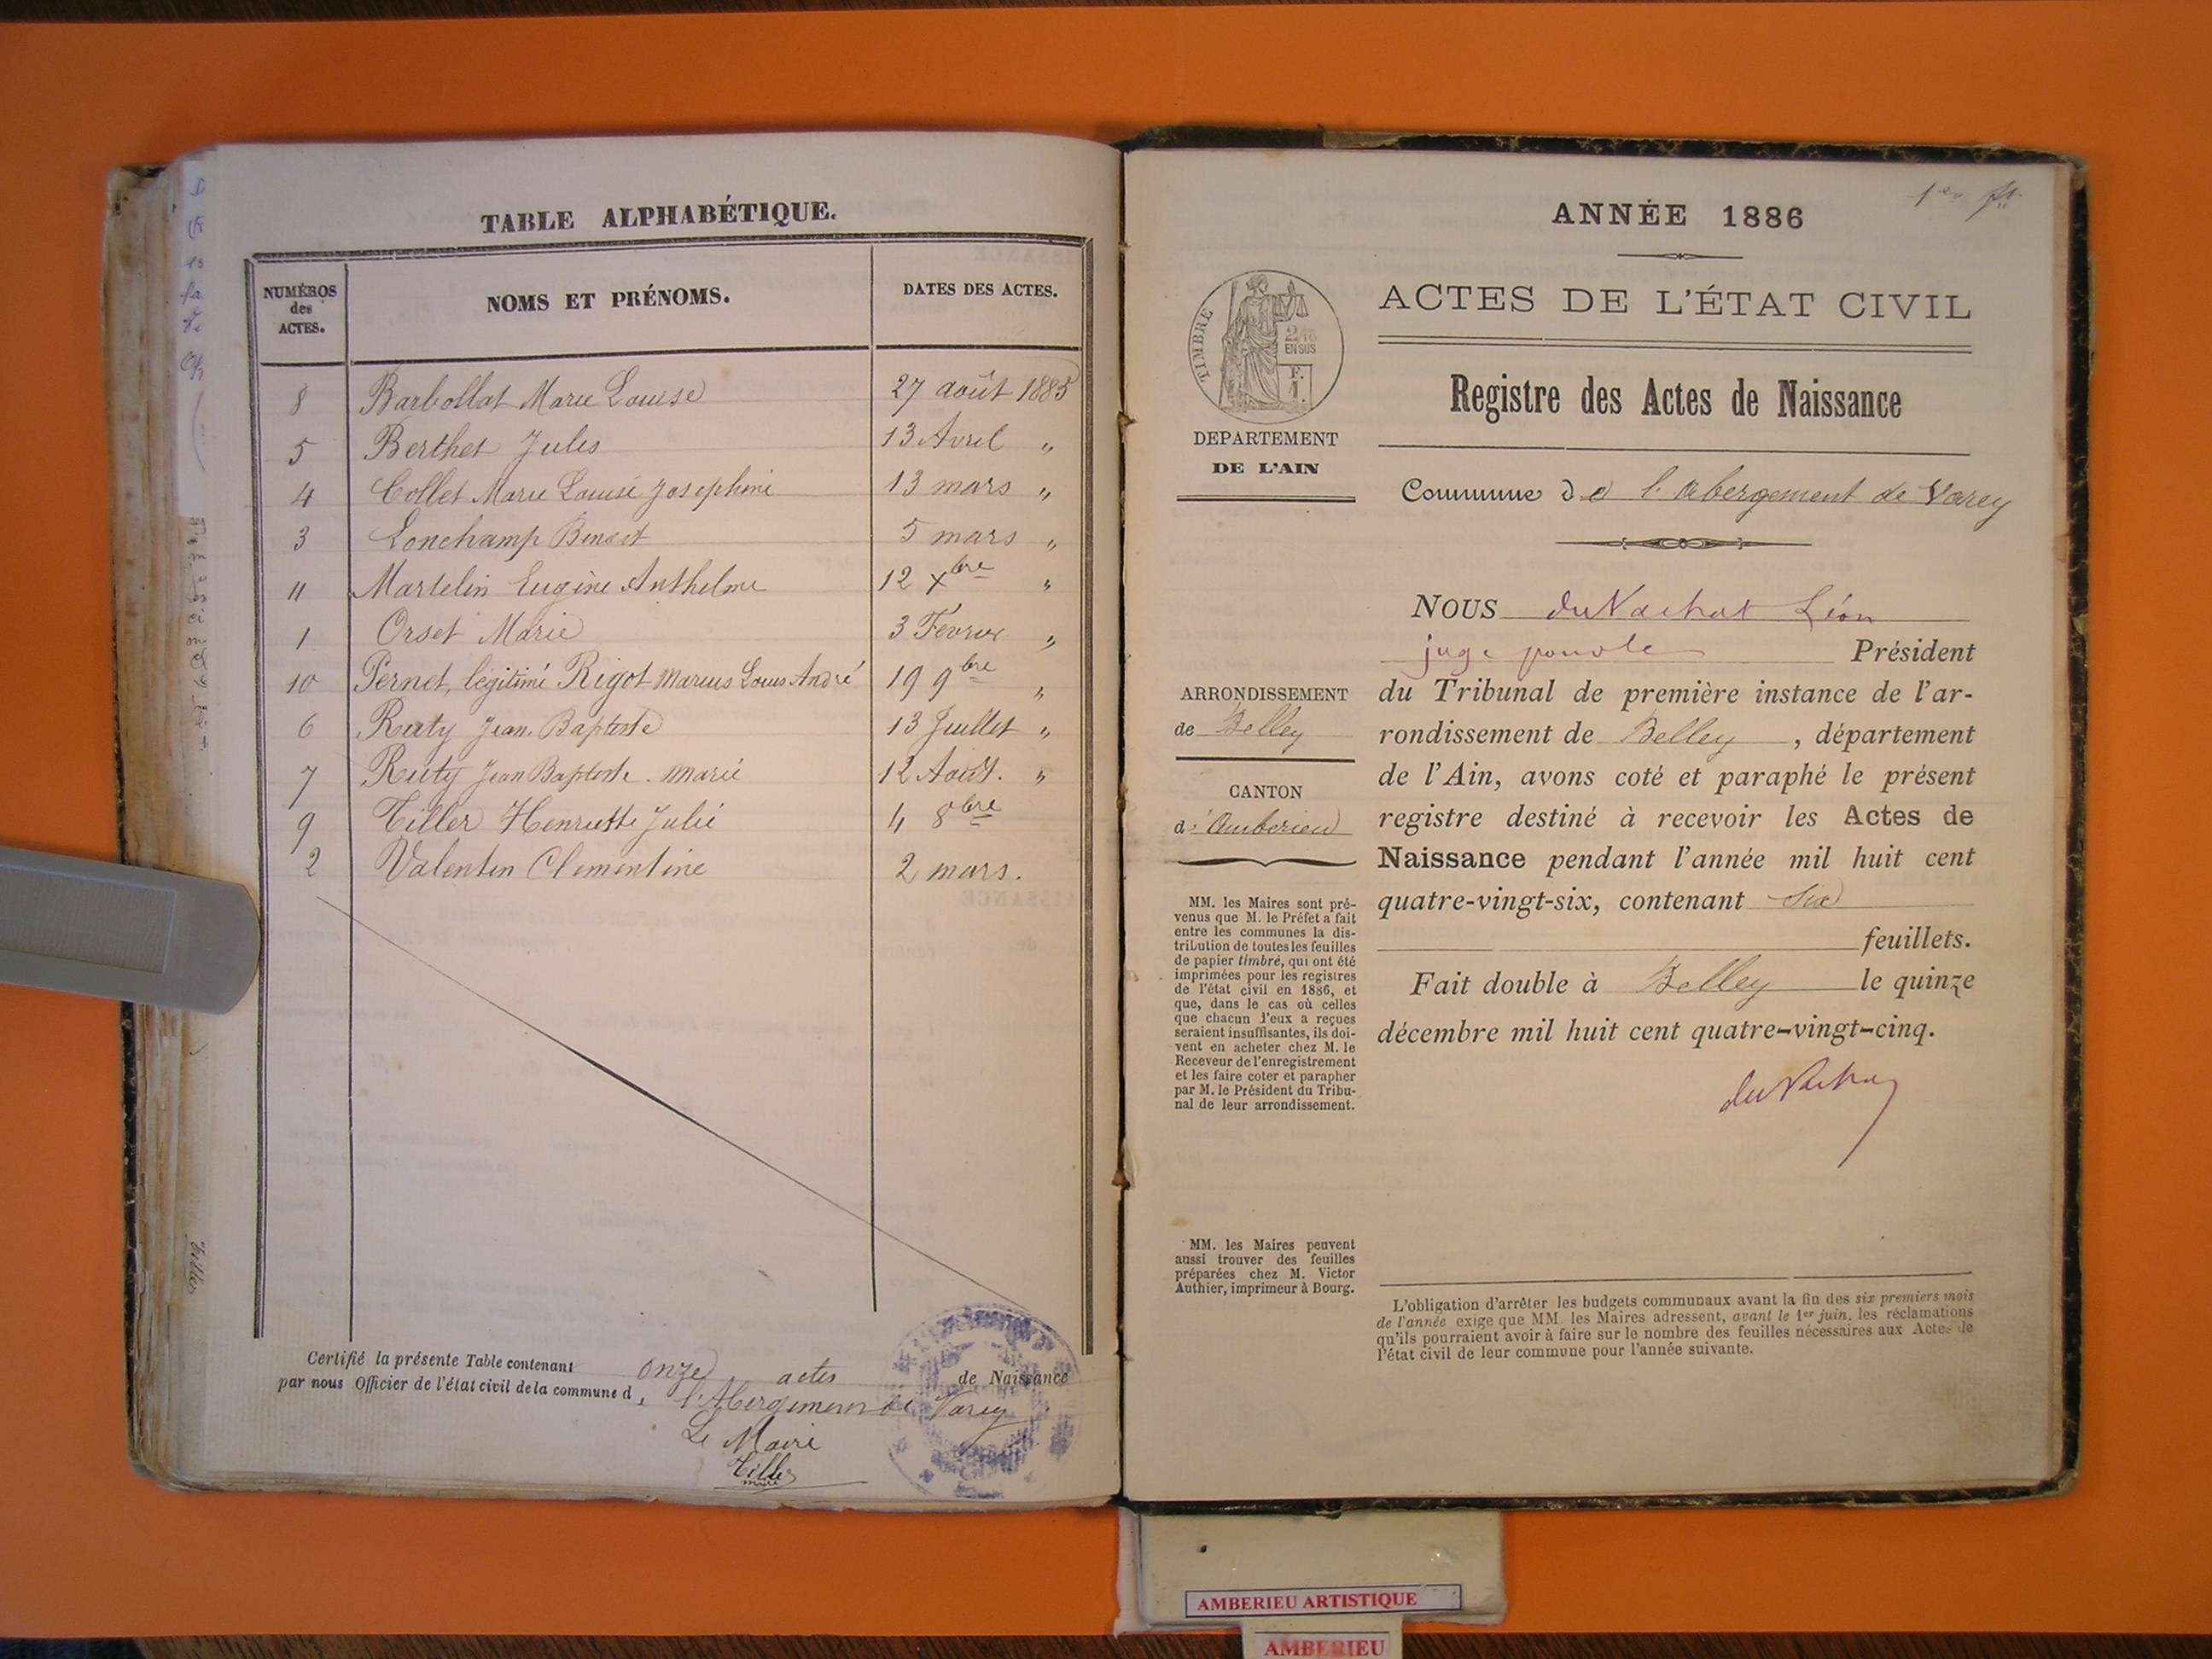 TABLE ALPHABÉTIQUE.
NUMÉROS des ACTES.
NOMS ET PRÉNOMS.
DATES DES ACTES.
8 Barbollat Marie Louise 27 août 1885
5 Berthet Jules 13 Avril "
4 Collet Marie Louise Josephine 13 mars "
3 Lonchamp Benoit 5 mars "
11 Martelin Eugène Anthelme 12 Xbre "
1 Orset Marie 3 Février "
10 Pernet, légitimé Rigot Marius Louis André 19 9bre "
6 Ruty Jean-Baptiste 13 Juillet "
7 Ruty Jean Baptiste. Marie 12 Août. "
9 Tiller Henriette Julie 4 8bre
2 Valentin Clementine 2 mars.
Certifié la présente Table contenant onze actes de Naissance
par nous Officier de l'état civil de la commune d, l'Abergement de Varey
Le Maire
Tiller
maire
1er ft.
ANNÉE 1886
ACTES DE L'ÉTAT CIVIL
TIMBRE
2/10
EN SUS
F.
1
DEPARTEMENT
DE L'AIN
Registre des Actes de Naissance
Commune de l'abergement de Varey
NOUS du Vachat Léon
juge Président
du Tribunal de première instance de l'ar-
rondissement de Belley, département
de l'Ain, avons coté et paraphé le présent
registre destiné à recevoir les Actes de
Naissance pendant l'année mil huit cent
quatre-vingt-six, contenant six
feuillets.
Fait double à Belley le quinze
décembre mil huit cent quatre-vingt-cinq.
du Vachat
ARRONDISSEMENT
de Belley
CANTON
d'Amberieu
MM. les Maires sont pré-
venus que M. le Préfet a fait
entre les communes la dis-
tribution de toutes les feuilles
de papier timbré, qui ont été
imprimées pour les registres
de l'état civil en 1886, et
que, dans le cas où celles
que chacun d'eux a reçues
seraient insuffisantes, ils doi-
vent en acheter chez M. le
Receveur de l'enregistrement
et les faire coter et parapher
par M. le Président du Tribu-
nal de leur arrondissement.
MM. les Maires peuvent
aussi trouver des feuilles
préparées chez M. Victor
Authier, imprimeur à Bourg.
L'obligation d'arrêter les budgets communaux avant la fin des six premiers mois
de l'année exige que MM. les Maires adressent, avant le 1er juin, les réclamations
qu'ils pourraient avoir à faire sur le nombre des feuilles nécessaires aux Actes de
l'état civil de leur commune pour l'année suivante.
AMBERIEU ARTISTIQUE
AMBERIEU